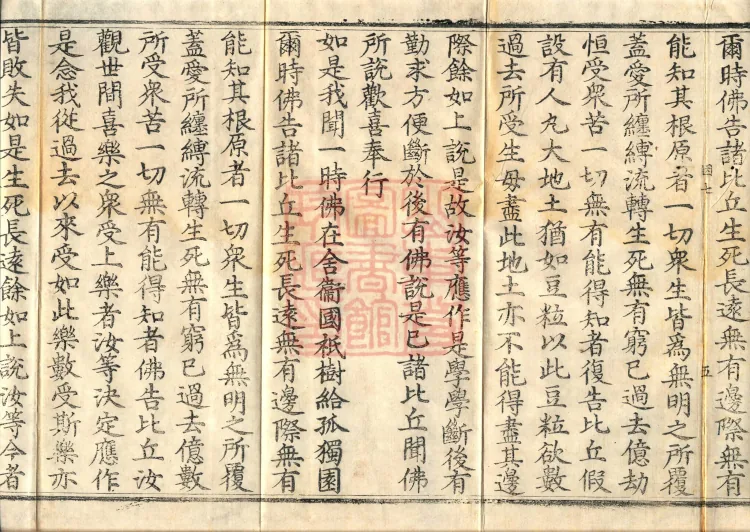 爾時佛告諸比丘生死長遠無有邊際無有
五
能知其根原者一切衆生皆爲無明之所覆
蓋愛所纏縛流轉生死無有窮已過去億劫
恒受衆苦一切無有能得知者復告比丘假
設有人丸大地土猶如豆粒以此豆粒欲數
過去所受生母盡此地土亦不能得盡其邊
際餘如上說是故汝等應作是學學斷後有
勤求方便斷於後有佛說是已諸比丘聞佛
所說歡喜奉行
如是我聞一時佛在舍衞國祇樹給孤獨園
爾時佛告諸比丘生死長遠無有邊際無有
能知其根原者一切衆生皆爲無明之所覆
蓋愛所纏縛流轉生死無有窮已過去億數
所受衆苦一切無有能得知者佛告比丘汝
觀世間喜樂之衆受上樂者汝等決定應作
是念我從過去以來受如此樂數受斯樂亦
皆敗失如是生死長遠餘如上說汝等今者